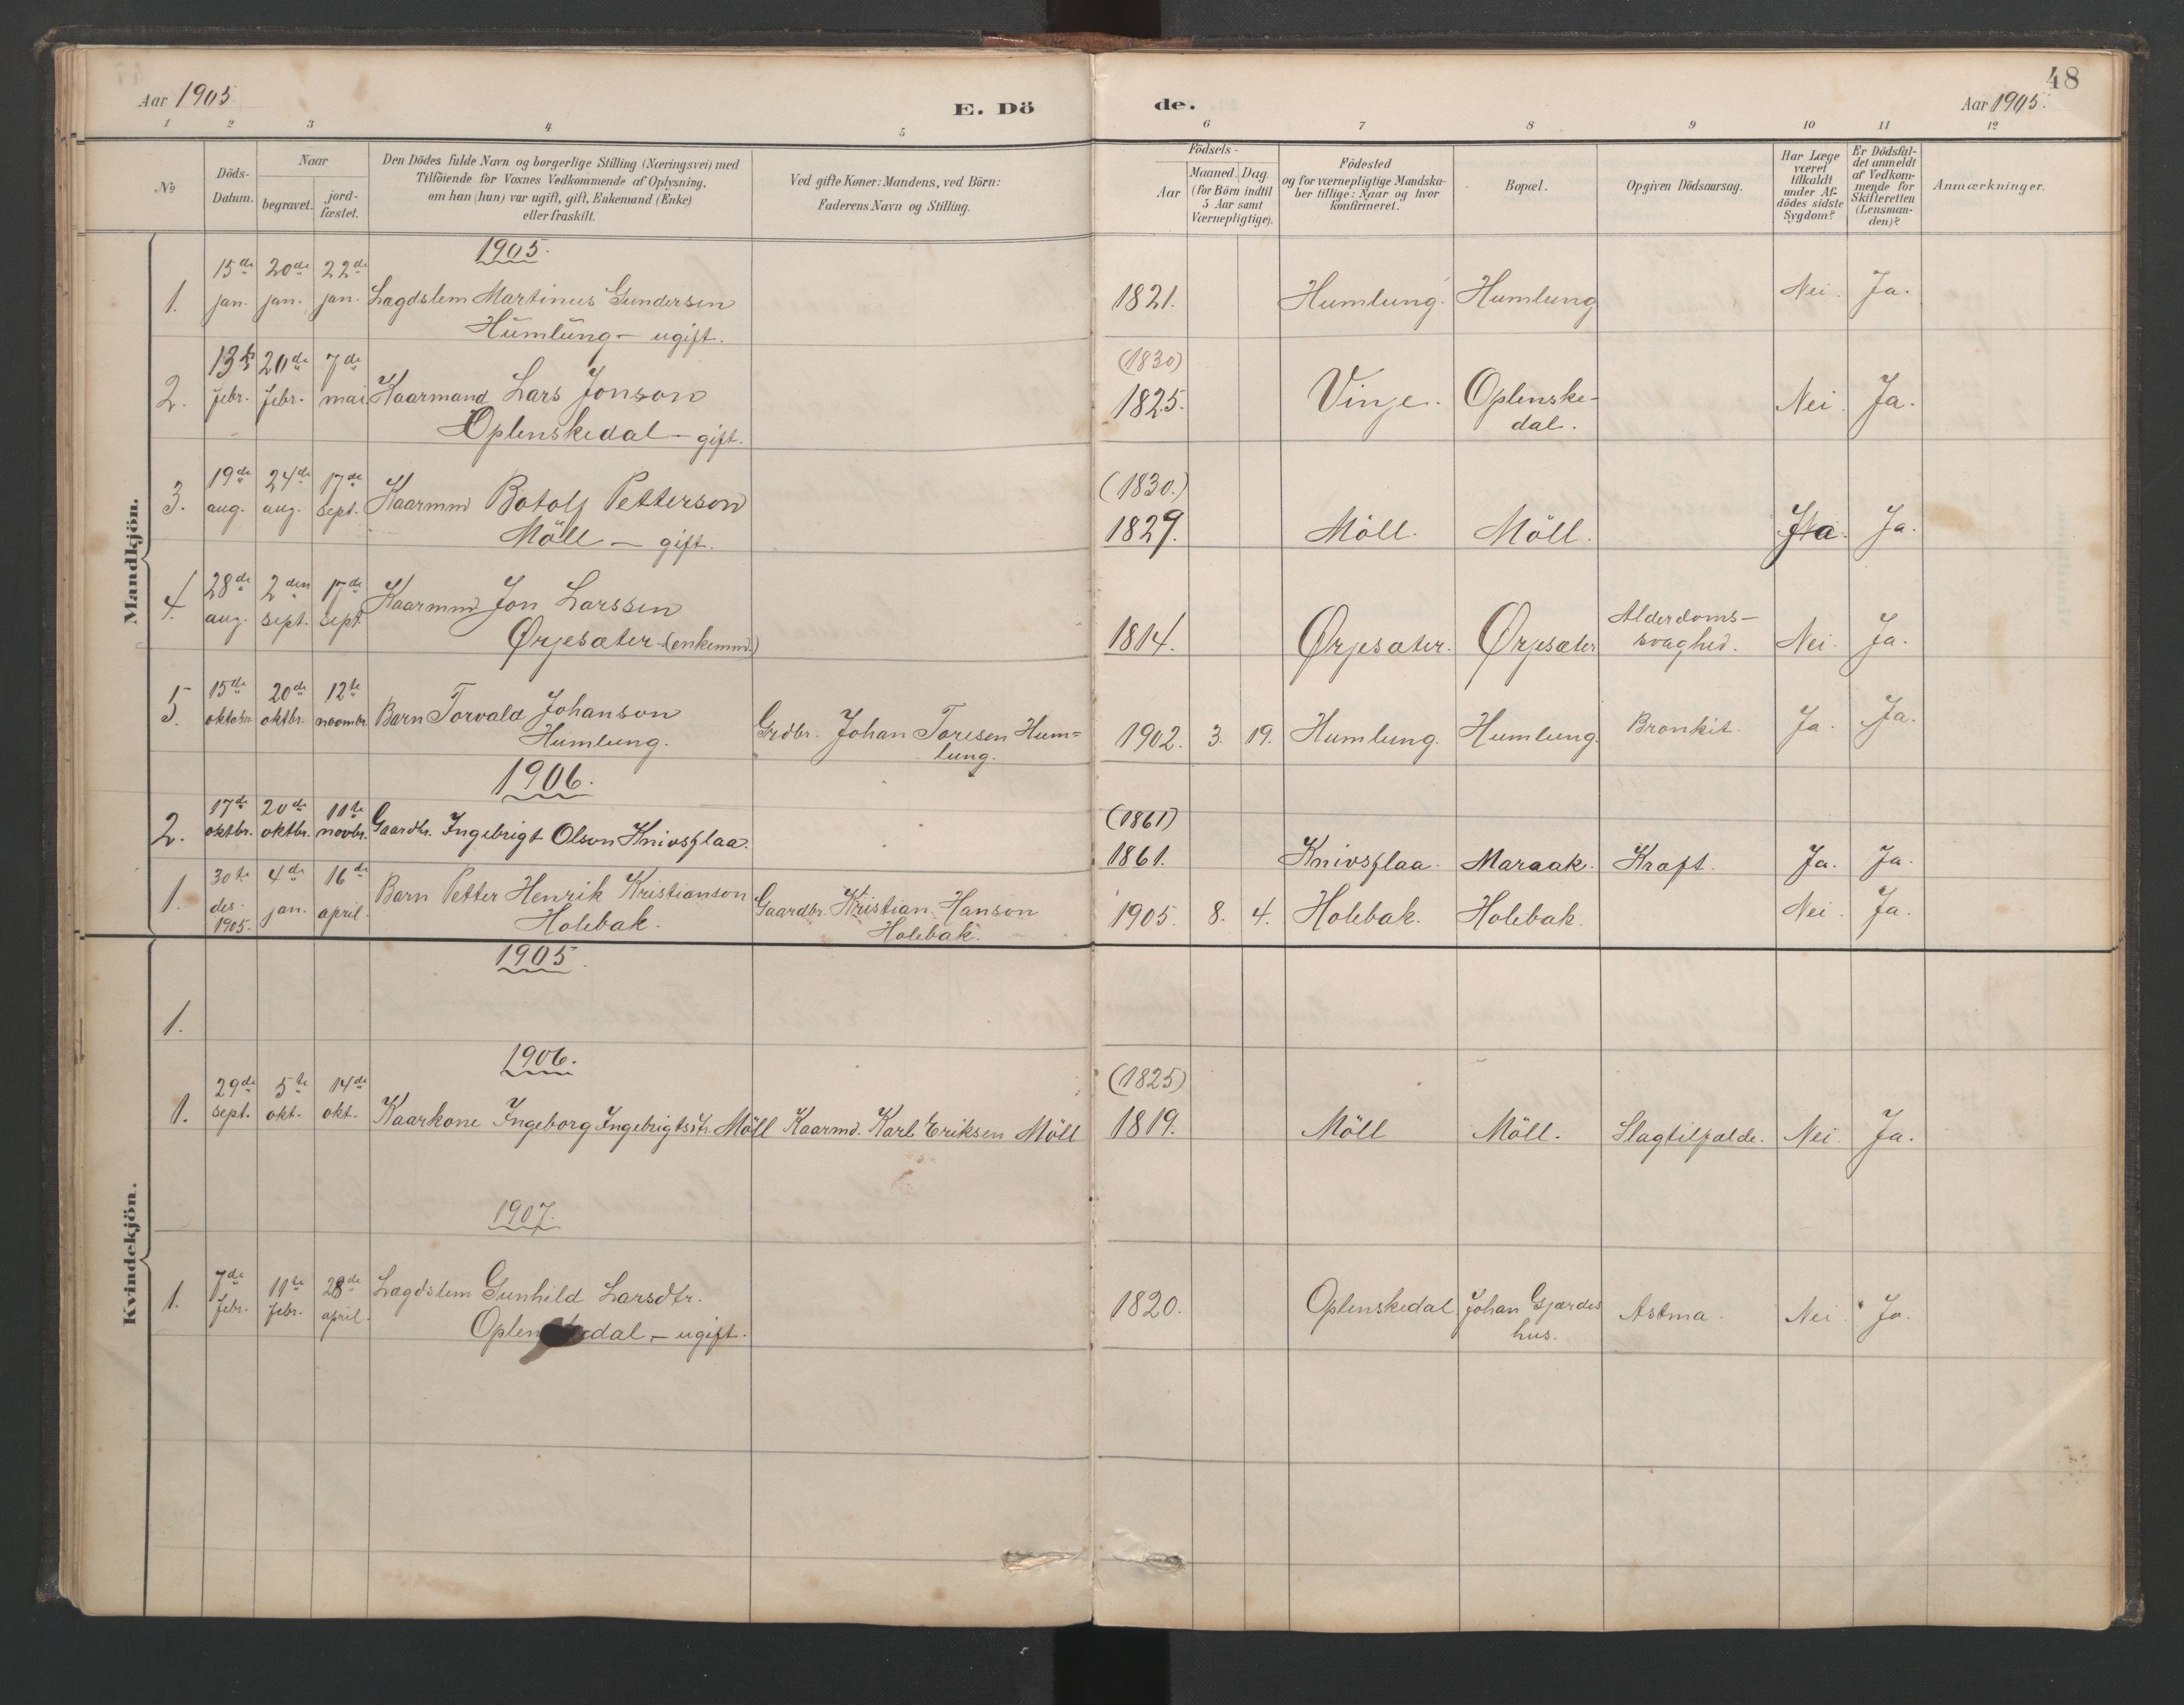 48
Aar 1905
E. Dö
de.
Aar 1905.
1 2 3 4 5 6 7 8 9 10 11 12
№
Döds-
Datum.
Naar
begravet.
jord-
fæstet.
Den Dödes fulde Navn og borgerlige Stilling (Næringsvei) med
Tilföiende for Voxnes Vedkommende af Oplysning,
om han (hun) var ugift, gift, Enkemand (Enke)
eller fraskilt.
Ved gifte Koner: Mandens, ved Börn:
Faderens Navn og Stilling.
Födsels-
Aar
Maaned. Dag.
(for Börn indtil
5 Aar samt
Værnepligtige).
Födested
og for værnepligtige Mandska-
ber tillige: Naar og hvor
konfirmeret.
Bopæl.
Opgiven Dödsaarsag.
Har Læge
været
tilkaldt
under Af-
dödes sidste
Sygdom?
Er Dödsfal-
det anmeldt
af Vedkom-
mende for
Skifteretten
(Lensman-
den)?
Anmærkninger.
Mandkjön.
1905.
15de 20de 22de
1. jan. jan. jan. Lægdslem Martinus Gundersen 1821. Humlung. Humlung Nei. Ja.
Humlung – ugift.
13de 20de 7de (1830)
2. febr. febr. mai Kaarmand Lars Jonson 1825. Vinje. Oplenske- Nei. Ja.
Oplenskedal – gift. dal.
19de 24de 17de (1830.)
3. aug. aug. sept. Kaarmnd Botolf Petterson
Möll – gift. 1829. Möll. Möll. Ja. Ja.
28de 2den 17de
4. aug. sept. sept. Kaarmnd Jon Larssen Alderdoms-
Ørjesæter (enkemnd.) 1814. Ørjesæter. Ørjesæter svaghed. Nei. Ja.
15de 20de 12te
5. oktober oktbr. novmbr. Barn Torvald Johanson Grdbr. Johan Toresen Hum= 1902. 3. 19. Humlung. Humlung. Bronkit. Ja. Ja.
Humlung. lung.
1906.
17de 20de 11te (1861)
2. oktbr. oktbr. novbr. Gaardbr. Ingebrigt Olson Knivsflaa. 1861. Knivsflaa. Maraak. Kræft. Ja. Ja.
30te 4de 16de
1. des. 1905. jan. april. Barn Petter Henrik Kristianson Gaardbr. Kristian Hanson 1905. 8. 4. Holebak. Holebak. Nei. Ja.
Holebak. Holebak.
Kvindekjön.
1905.
1.
1906.
29de 5te 14de (1825)
1. sept. okt. okt. Kaarkone Ingeborg Ingebrigtsdtr. Möll Kaarmd. Karl Eriksen Möll 1819. Möll Möll. Slagtilfælde. Nei. Ja.
1907.
7de 11te 28de
1. febr. febr. april. Lægdslem Gunhild Larsdtr. 1820. Oplenskedal Johan Gjærdes Astma. Nei. Ja.
Oplenskedal – ugift. hus.